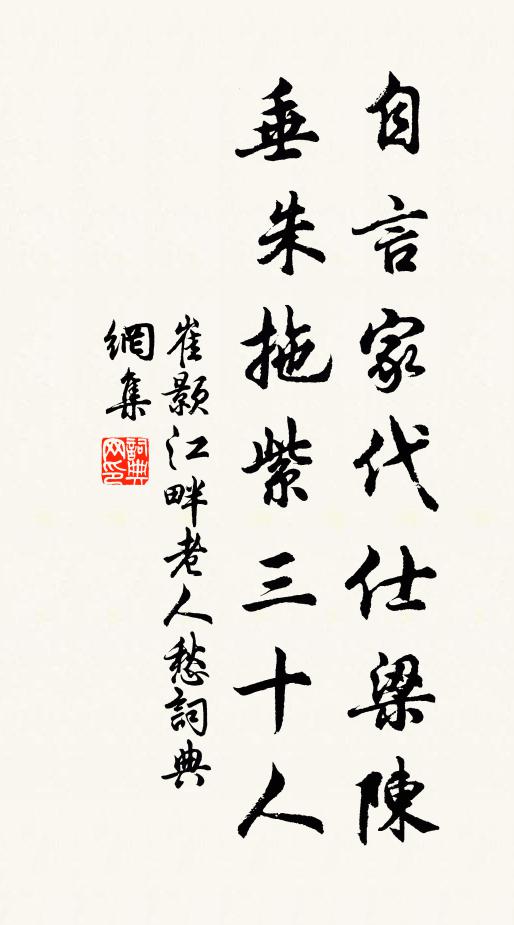 自言家代仕梁陳
垂朱拖紫三十人
崔顥江畔老人愁詞典
網集
詞典網印